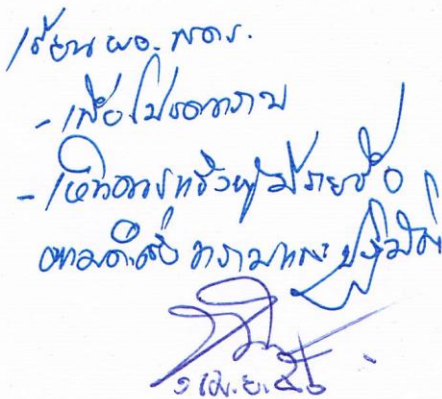 เรียน ผอ. พดร.
- เพื่อโปรดทราบ
- เห็นควรแจ้งผู้มีรายชื่อ
ตามคำสั่ง ทราบและปฏิบัติ
เม.ย.